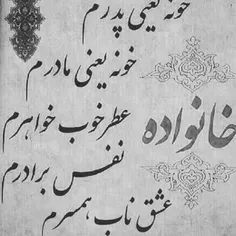 خونه یعنی پدرم
خونه یعنی مادرم
خانواده
عطر خوب خواهرم
نفس برادرم
عشق ناب همسرم